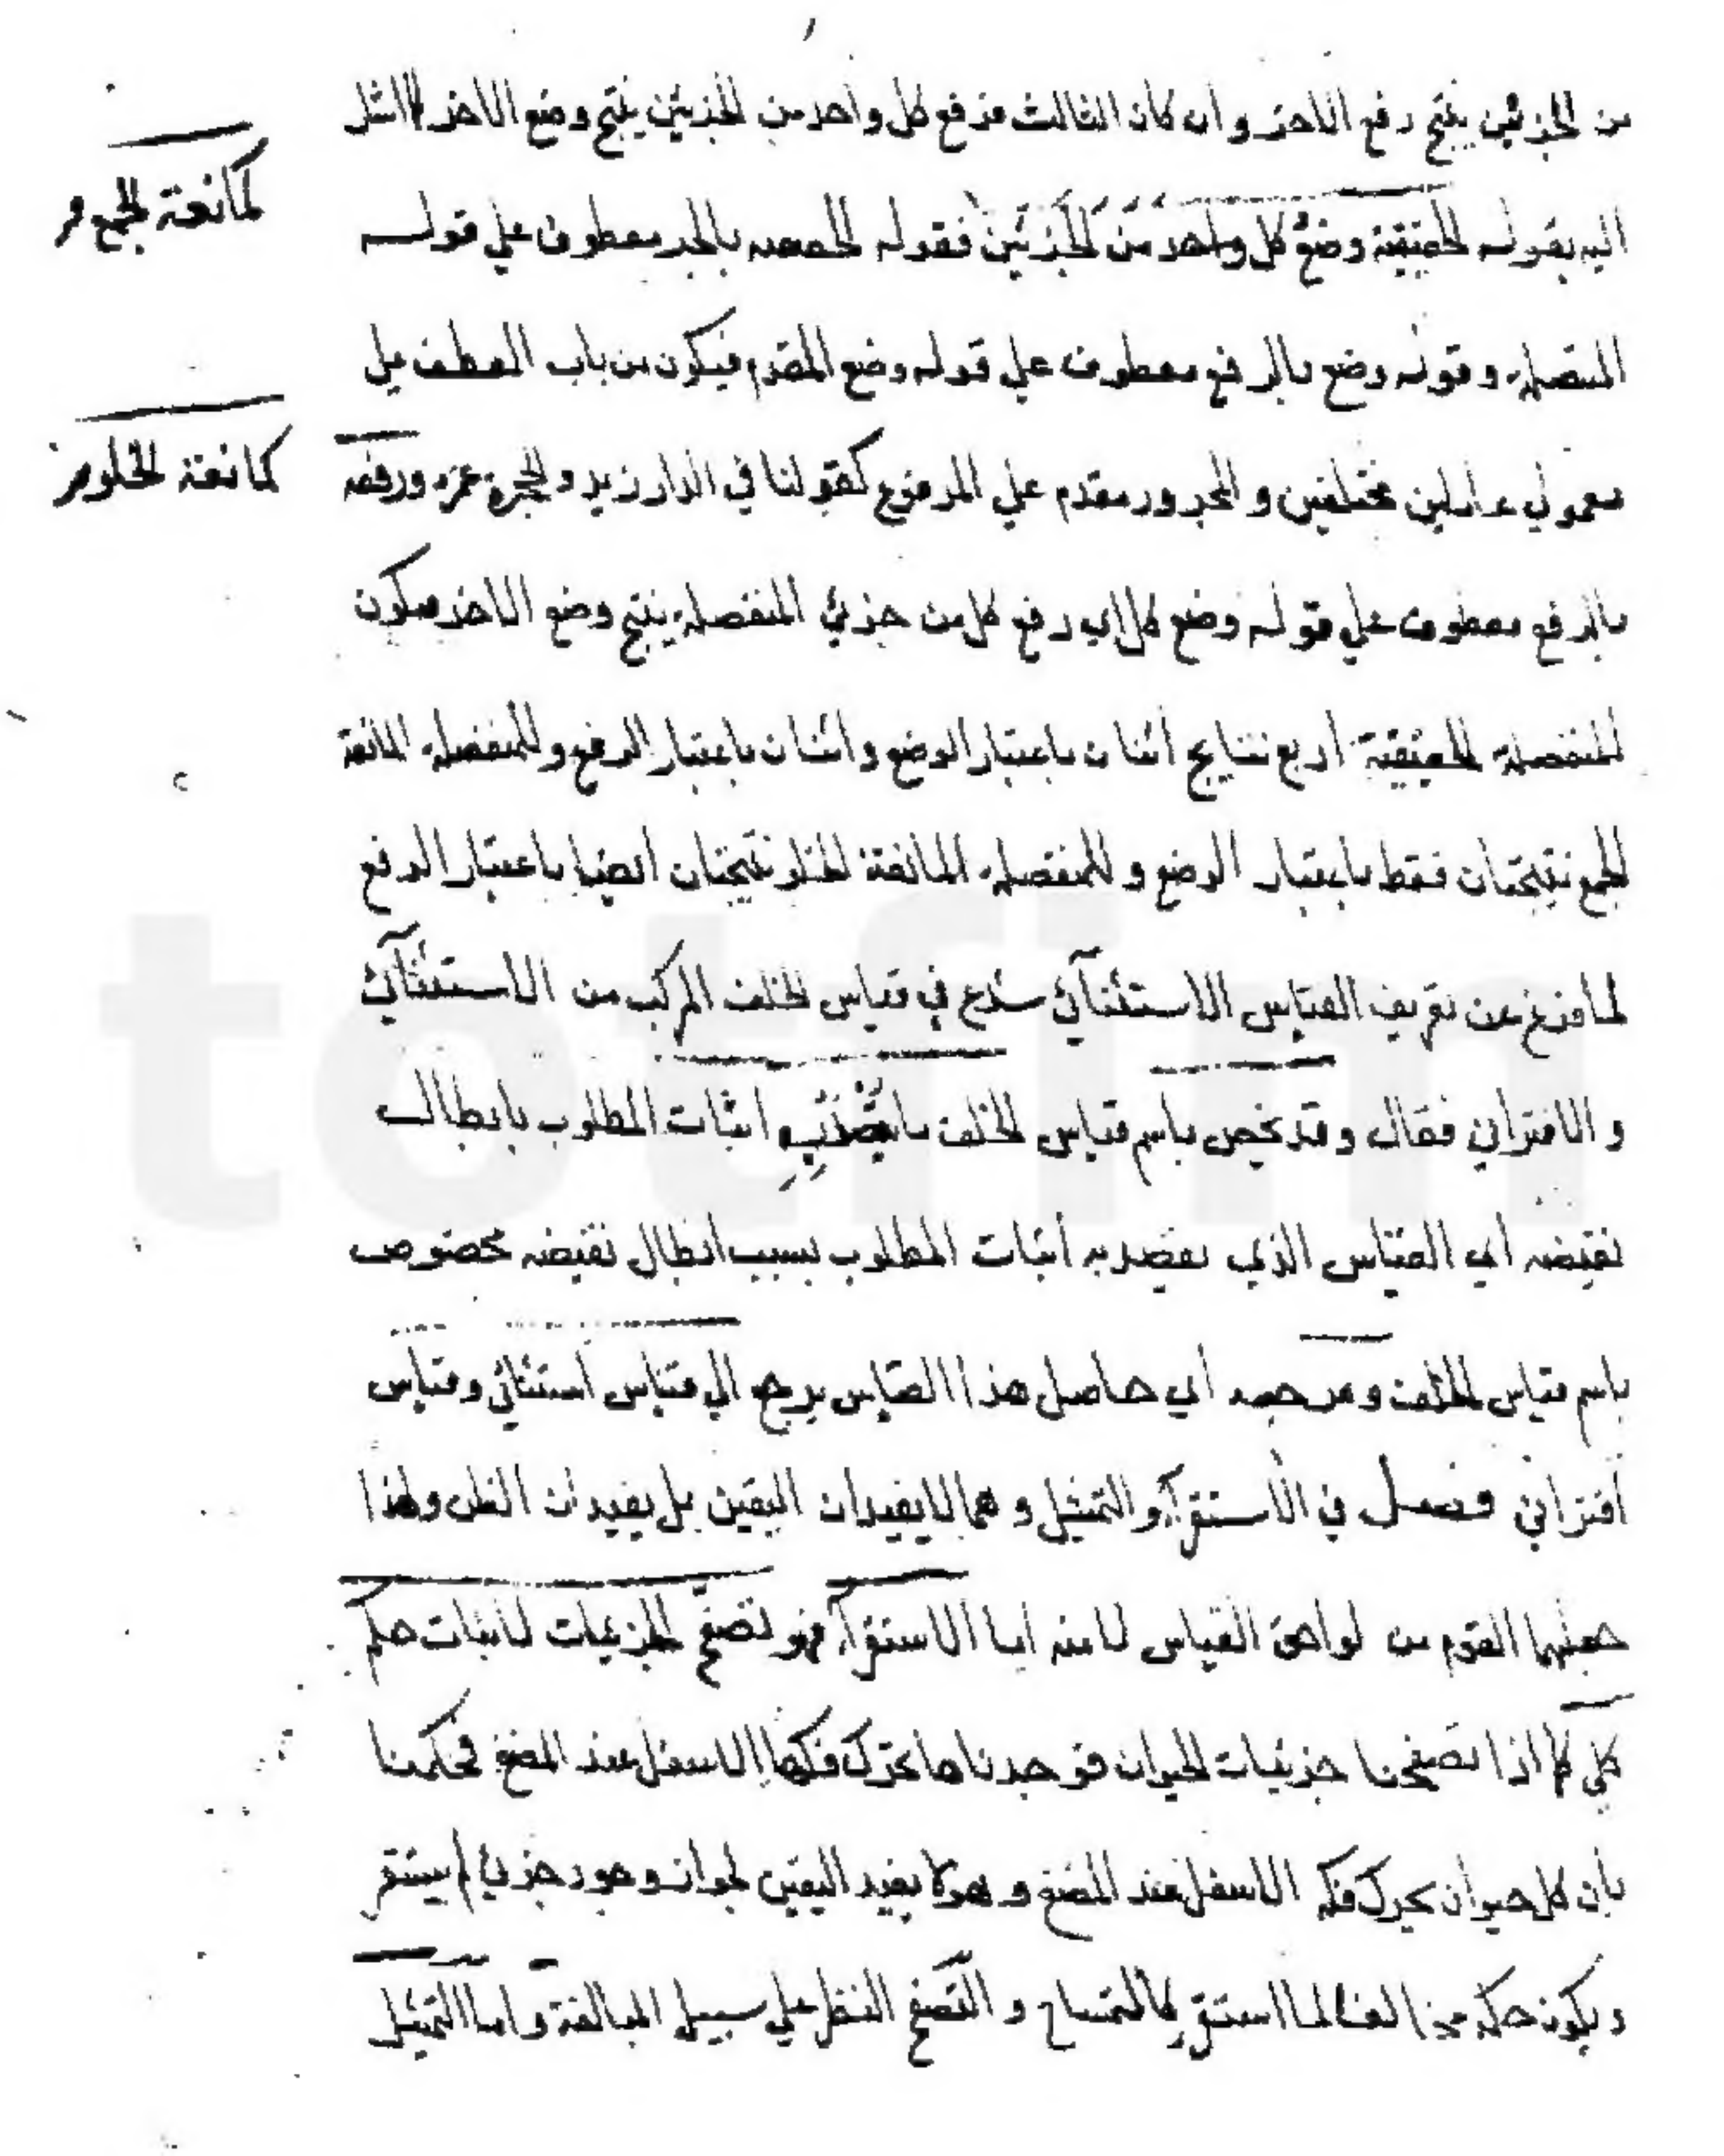 من الجزئين ينتج رفع الاخر وان كان الثالث فرفع كل واحد من الجزئين ينتج وضع الاخر اشار
كمانعة الجمع و
اليه بقوله الحقيقية وضع كل واحد من الجزئين فقوله الحقيقية بالجر معطوف علي قوله
المتصلة وقوله وضع بالرفع معطوف علي قوله وضع المقدم فيكون من باب العطف علي
كمانعة الخلو
معمولي عاملين مختلفين والمجرور مقدم علي المرفوع كقولنا في الدار زيد والحجرة عمرو ورفعه
بالرفع معطوف علي قوله وضع كل اي رفع كل من جزئي المنفصلة ينتج وضع الاخر فيكون
للمنفصلة الحقيقية اربع نتايج اثنان باعتبار الوضع واثنان باعتبار الرفع وللمنفصلة المانعة
الجمع نتيجتان فقط باعتبار الوضع وللمنفصلة المانعة الخلو نتيجتان ايضا باعتبار الرفع
لما فرغ عن تعريف القياس الاستثنائي شرع في قياس الخلف المركب من الاستثنائي
والاقتراني فقال وقد يخص باسم قياس الخلف ما يقصد به اثبات المطلوب بابطال
نقيضه اي القياس الذي يقصد به اثبات المطلوب بسبب ابطال نقيضه مخصوص
باسم قياس الخلف ومرجعه أي حاصل هذا القياس يرجع الي قياس استثنائي وقياس
اقتراني فصل في الاستقراء والتمثيل وهما لا يفيدان اليقين بل يفيدان الظن ولهذا
جعلهما القوم من لواحق القياس لا منه اما الاستقراء فهو تصفح الجزئيات لاثبات حكم
كلي كما اذا تصفحنا جزئيات الحيوان فوجدناها تحرك فكها الاسفل عند المضغ فحكمنا
بان كل حيوان يحرك فكه الاسفل عند المضغ وهو لا يفيد اليقين لجواز وجود جزئي لم يستقر
ويكون حكمه مخالفا لما استقر كالتمساح والتصفح النظر علي سبيل المبالغة واما التمثيل
totfim